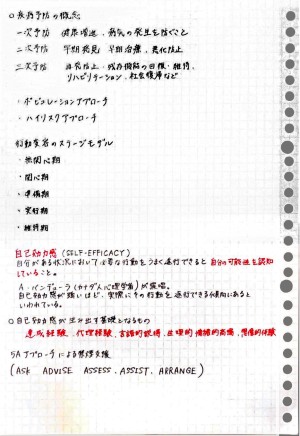 ○疾病予防の概念
一次予防 健康増進、病気の発生を防ぐこと
二次予防 早期発見、早期治療、悪化防止
三次予防 再発防止・残存機能の回復・維持、
リハビリテーション、社会復帰など
・ポピュレーションアプローチ
・ハイリスクアプローチ
行動変容のステージモデル
・無関心期
・関心期
・準備期
・実行期
・維持期
自己効力感 (SELF-EFFICACY)
自分がある状況において必要な行動をうまく遂行できると自分の可能性を認知
していること。
A・バンデューラ(カナダ人心理学者)が提唱。
自己効力感が強いほど、実際にその行動を遂行できる傾向にあると
いわれている。
○自己効力感が生み出す基礎となるもの
達成経験、代理経験、言語的説得、生理的情緒的高揚、想像的体験
5Aアプローチによる禁煙支援
(ASK ADVISE ASSESS, ASSIST, ARRANGE)